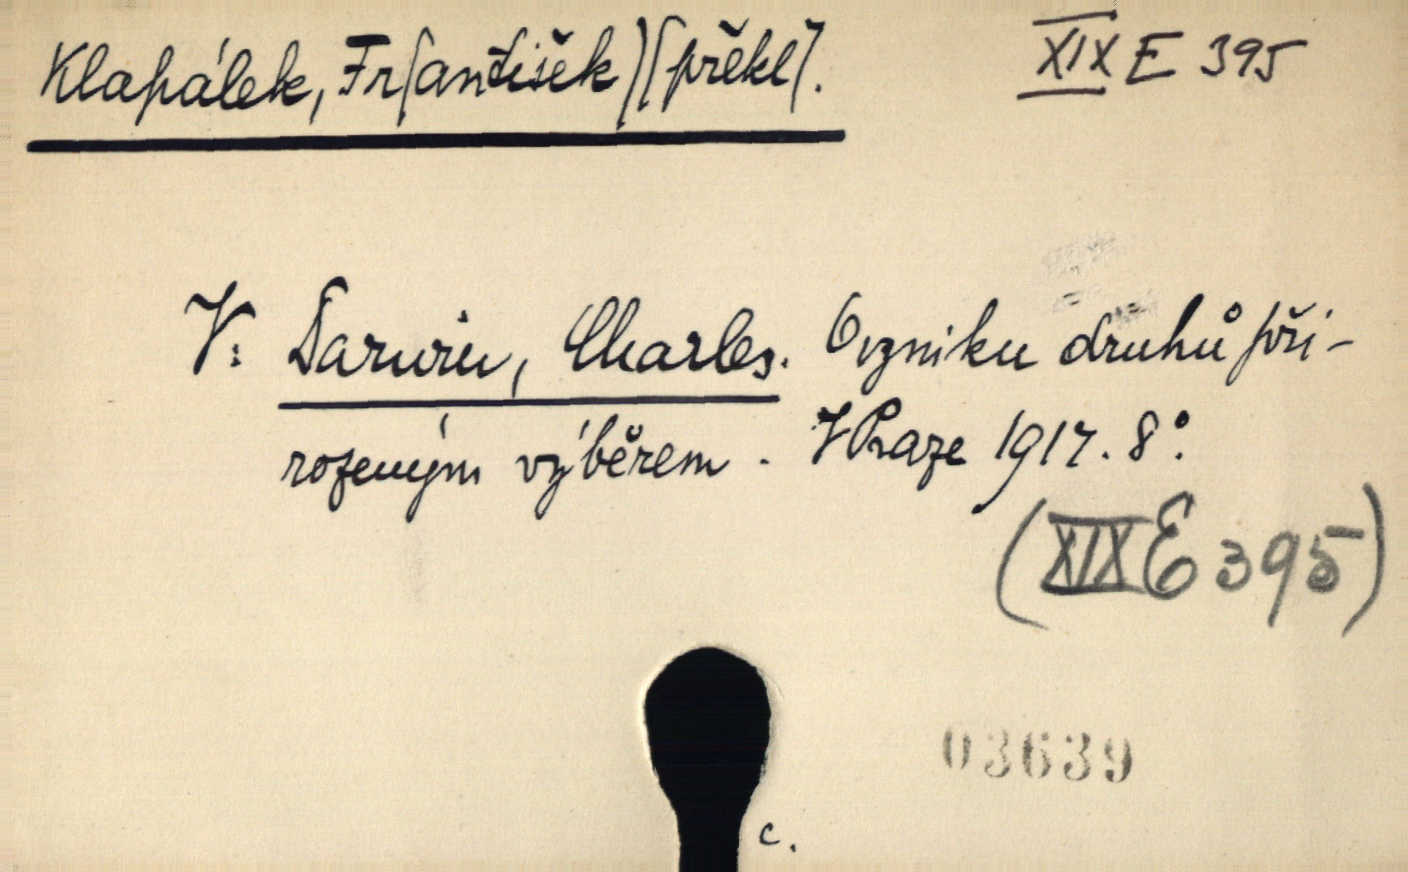 Klapálek, Fr[antišek] [překl].
XIX E 395
V: Darwin, Charles. O vzniku druhů při-
rozeným výběrem. V Praze 1917. 8°.
(XIX E 395)
03639
c.